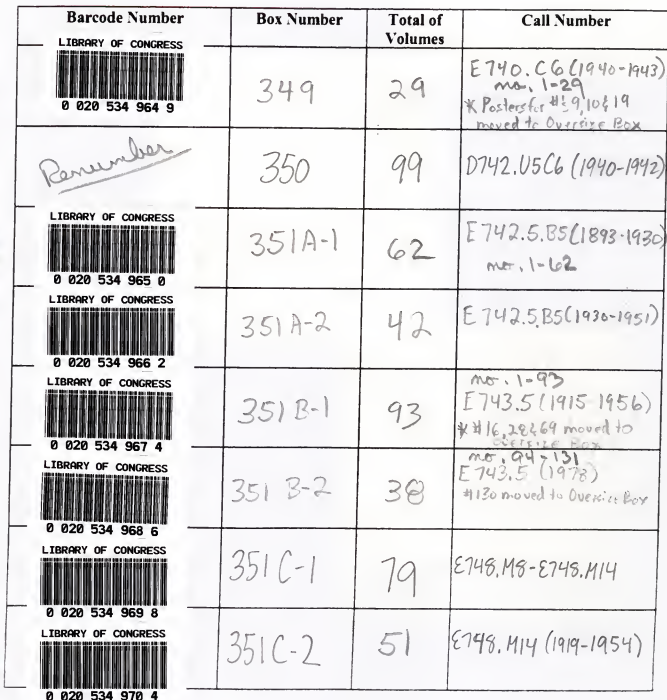 Barcode Number Box Number Total of Volumes Call Number
LIBRARY OF CONGRESS
0 020 534 964 9
349
29
E740.C6 (1940-1943)
no. 1-29
* Posters for #s 9, 10 & 19
moved to Oversize Box
Renumber
350
99
D742.U5C6 (1940-1942)
LIBRARY OF CONGRESS
0 020 534 965 0
351A-1
62
E742.5.B5(1893-1930)
no. 1-62
LIBRARY OF CONGRESS
0 020 534 966 2
351A-2
42
E742.5.B5(1930-1951)
LIBRARY OF CONGRESS
0 020 534 967 4
351 B-1
93
no. 1-93
E743.5 (1915-1956)
* #16, 28 & 69 moved to
Oversize Box
LIBRARY OF CONGRESS
0 020 534 968 6
351 B-2
38
no. 94-131
E743.5 (1978)
#130 moved to Oversize Box
LIBRARY OF CONGRESS
0 020 534 969 8
351 C-1
79
E748.M8-E748.M14
LIBRARY OF CONGRESS
0 020 534 970 4
351C-2
51
E748.M14 (1919-1954)